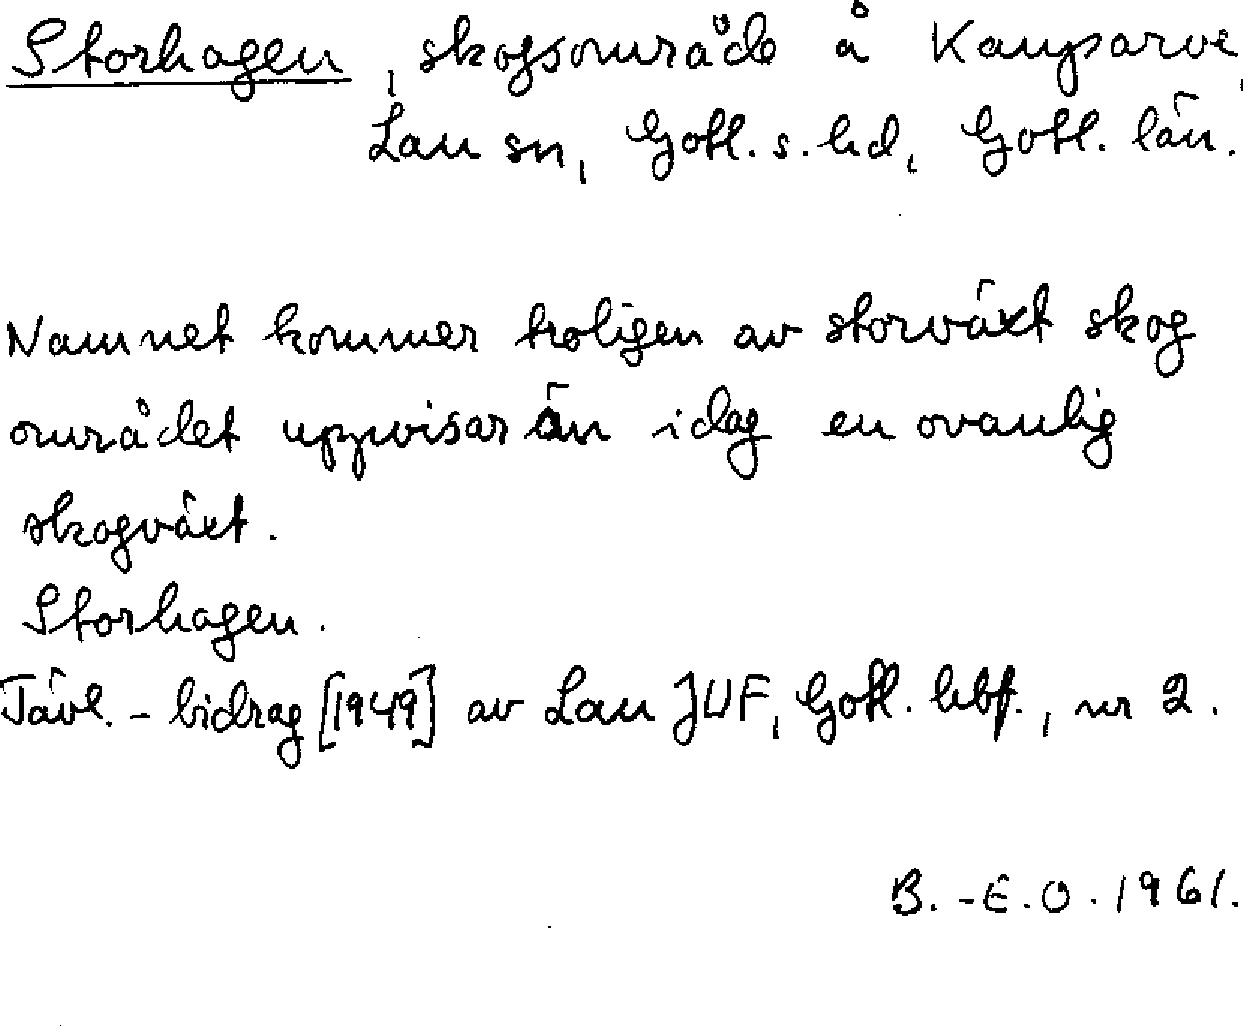 Storhagen, skogsområde å Kauparve,
Lau sn, Gotl. s. hd, Gotl. län.
Namnet kommer troligen av storväxt skog
området uppvisar än idag en ovanlig
skogväxt.
Storhagen.
Tävl.-bidrag [1949] av Lau JUF, Gotl. hbf., nr 2.
B.-E.O. 1961.